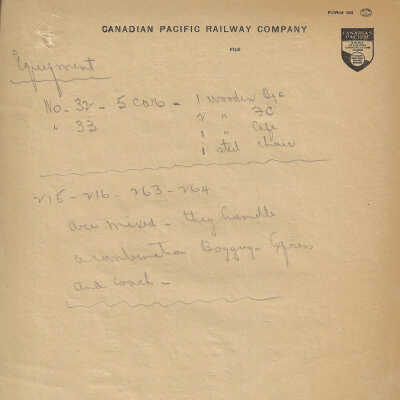 FORM
CANADIAN PACIFIC RAILWAY COMPANY
FILE
CANADIAN PACIFIC
Equipment
No. 32 - 5 cars - 1 wooden Bge
" 33 2 " FC
1 " Cafe
1 steel chair
215 - 216 - 263 - 264
are mixed - they handle
a combination Baggage - Express
and coach -